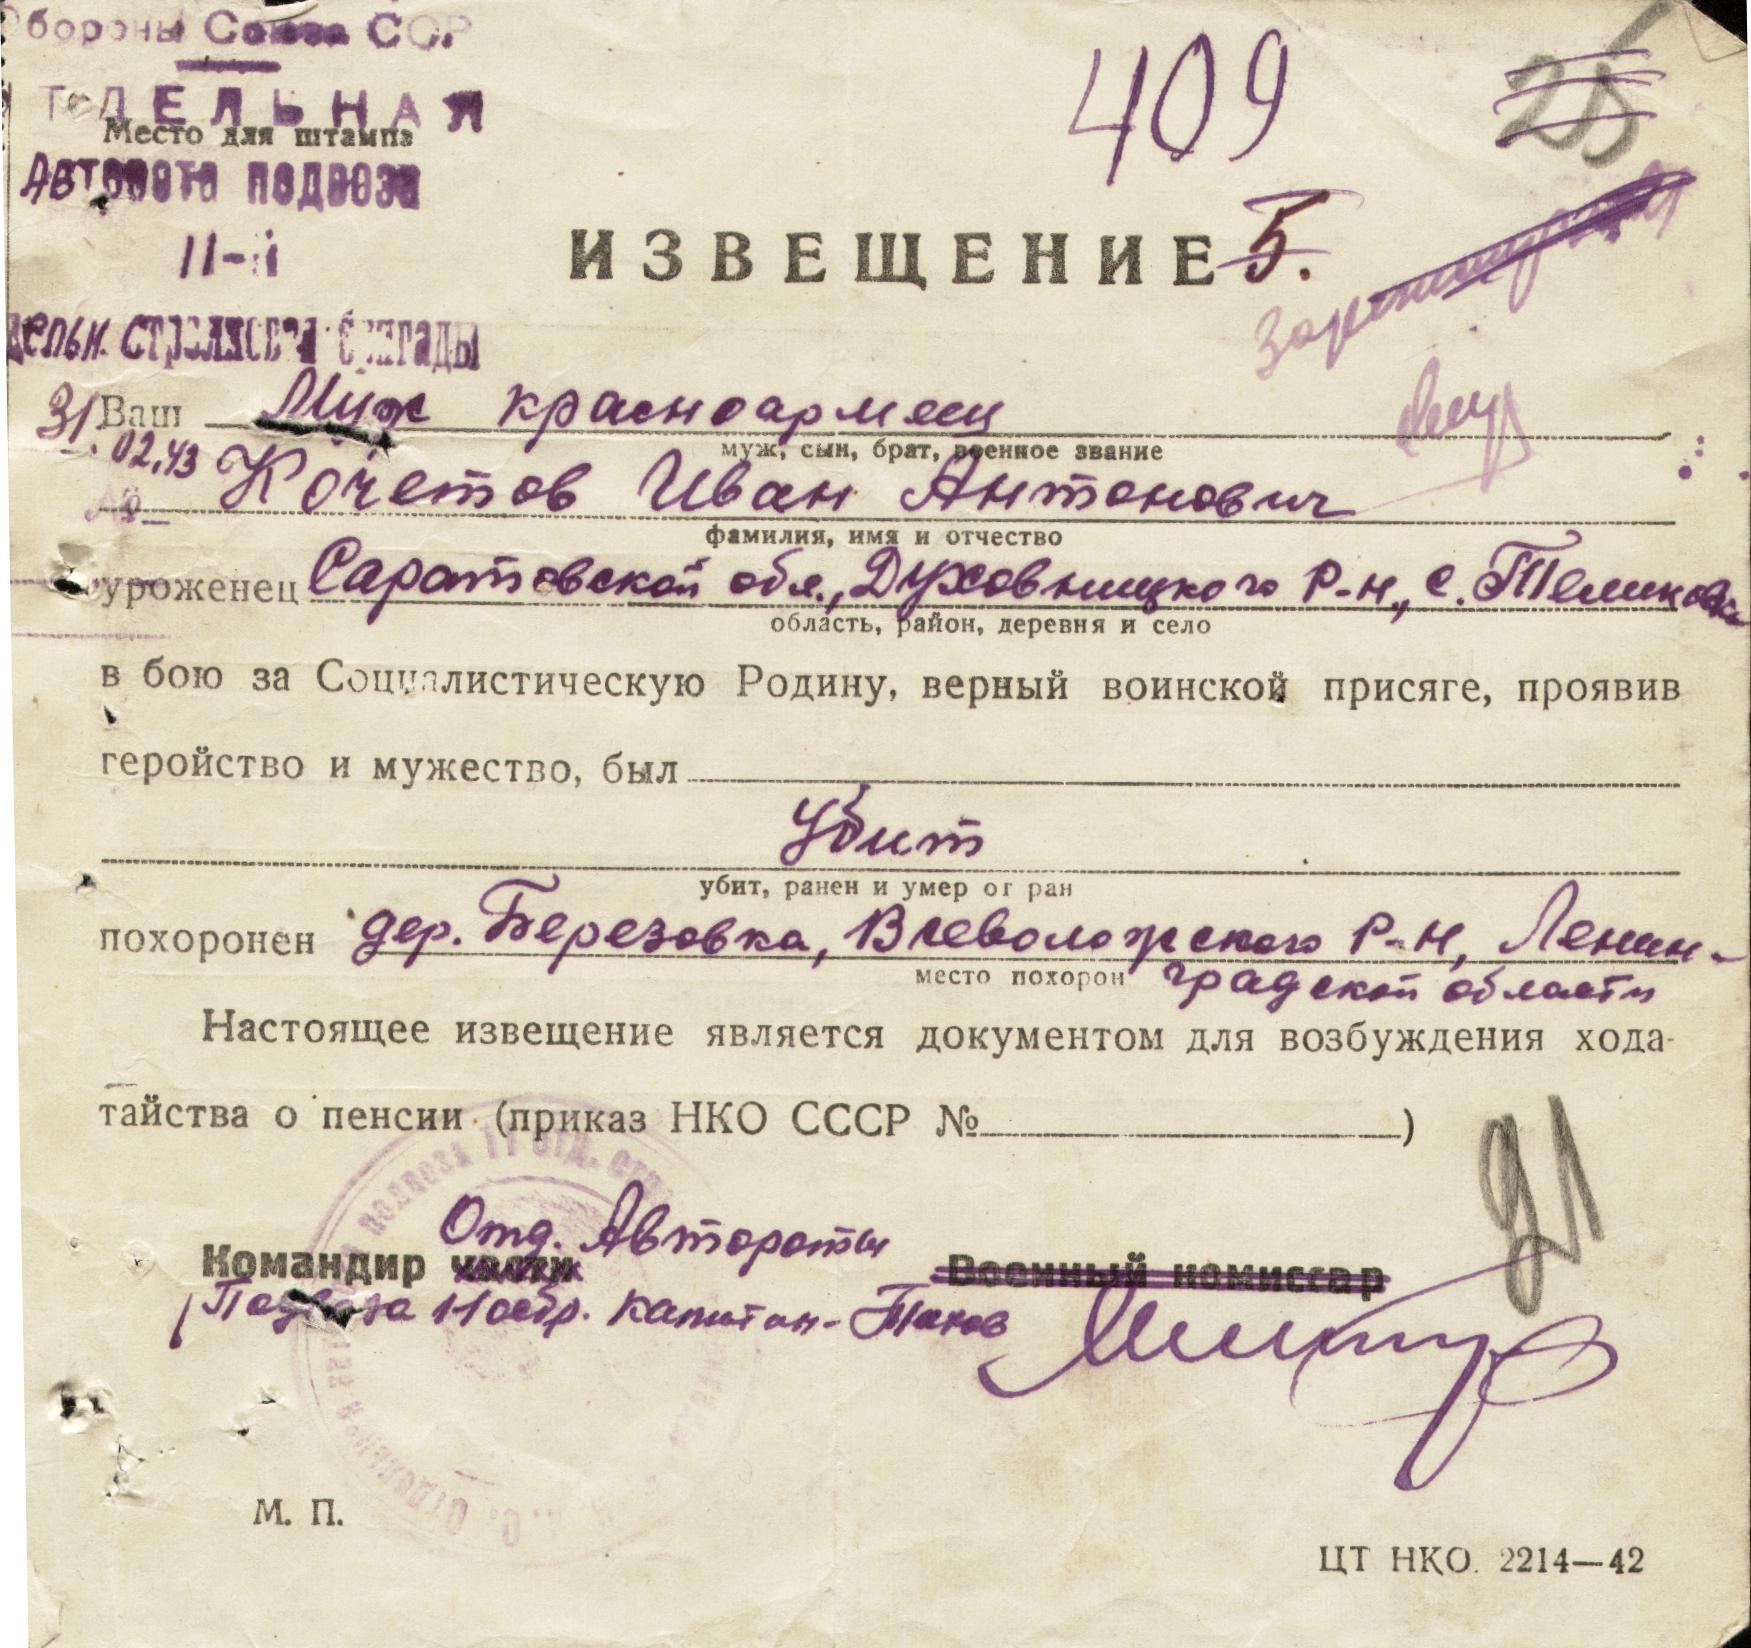 обороны Союза ССР
409
25
ОТДЕЛЬНАЯ
Место для штампа
Авторота подвоза
11-й
ИЗВЕЩЕНИЕ 5.
дельн. стрелковой бригады
31 Ваш Муж красноармеец
муж, сын, брат, военное звание
.02.43 Кочетов Иван Антонович
№
фамилия, имя и отчество
уроженец Саратовской обл., Духовницкого р-н, с. Теликовка
область, район, деревня и село
в бою за Социалистическую Родину, верный воинской присяге, проявив
геройство и мужество, был
Убит
убит, ранен и умер от ран
похоронен дер. Березовка, Всеволожского р-н, Ленин-
место похорон градской области
Настоящее извещение является документом для возбуждения хода-
тайства о пенсии (приказ НКО СССР № )
91
Отд. Автороты
Командир части Военный комиссар
Подвоза 11 осбр. капитан- Танов
М. П.
ЦТ НКО. 2214—42